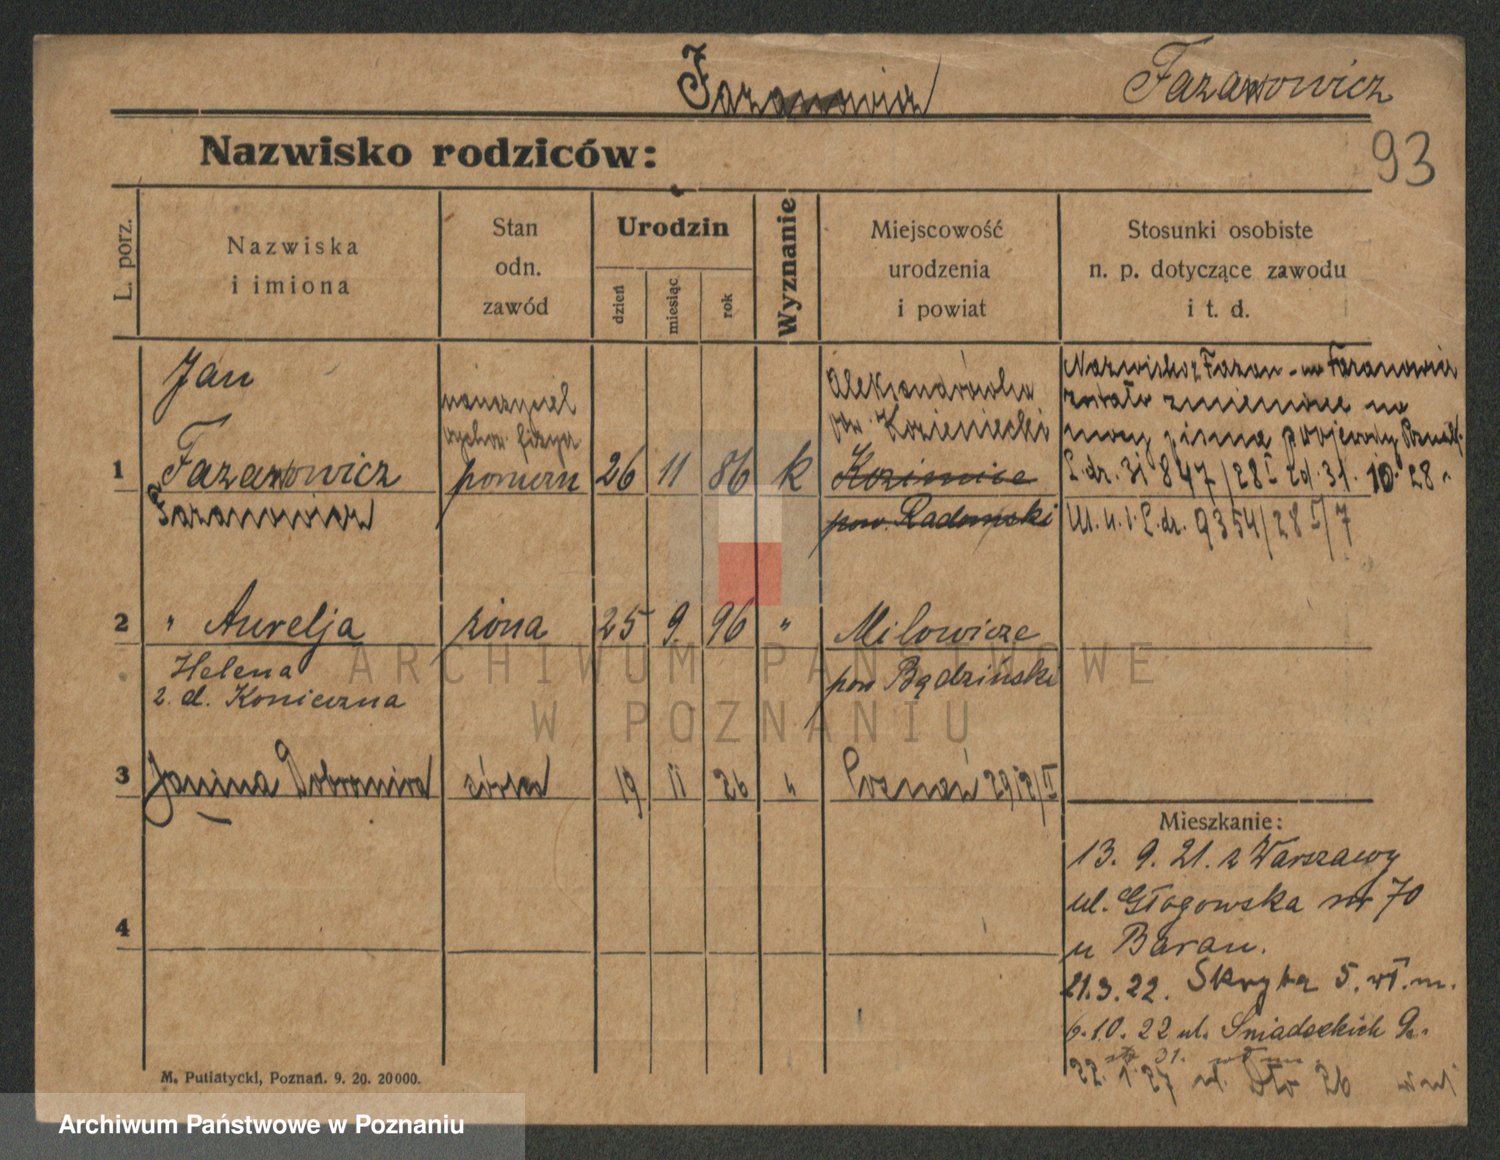 Fazanowicz
Fazanowicz
93
Nazwisko rodziców:
L. porz.
Nazwiska
i imiona
Stan
odn.
zawód
Urodzin
dzień
miesiąc
rok
Wyznanie
Miejscowość
urodzenia
i powiat
Stosunki osobiste
n. p. dotyczące zawodu
i t. d.
Jan
1 Fazanowicz
Fazanowicz
nauczyciel
wychow. fizycz
26 11 86 k
Aleksandrówka
pow. Kozieniecki
Kozienice
pow. Radomski
Nazwisko z Fazan na Fazanowicz
zostało zmienione na
mocy pisma
L. dz. 31847/28 I z d. 31. 10. 28
L. dz. 9354/28 I/7
2 " Aurelja żona 25 9. 96 " Milowicze
Helena
z d. Konieczna
pow Będziński
3 Janina Dobromira córka 19 11 26 " Poznań 2918/II
4
Mieszkanie:
13. 9. 21. z Warszawy
ul. Głogowska nr 70
u Baran.
21.3.22. Skryta 5. wł. m.
10. 22 ul. Śniadeckich
22. 1 27
M. Putiatycki, Poznań. 9. 20. 20000.
ARCHIWUM PAŃSTWOWE
W POZNANIU
Archiwum Państwowe w Poznaniu